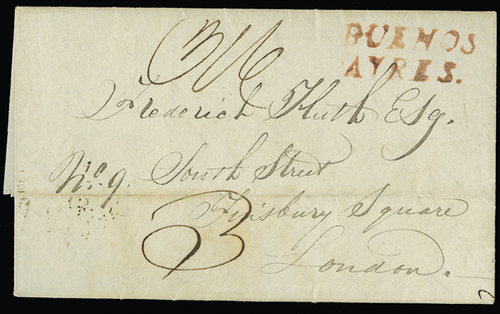 BUENOS
AYRES.
3/6
Frederick Huth Esq.
No. 9. South Street
Finsbury Square
London.